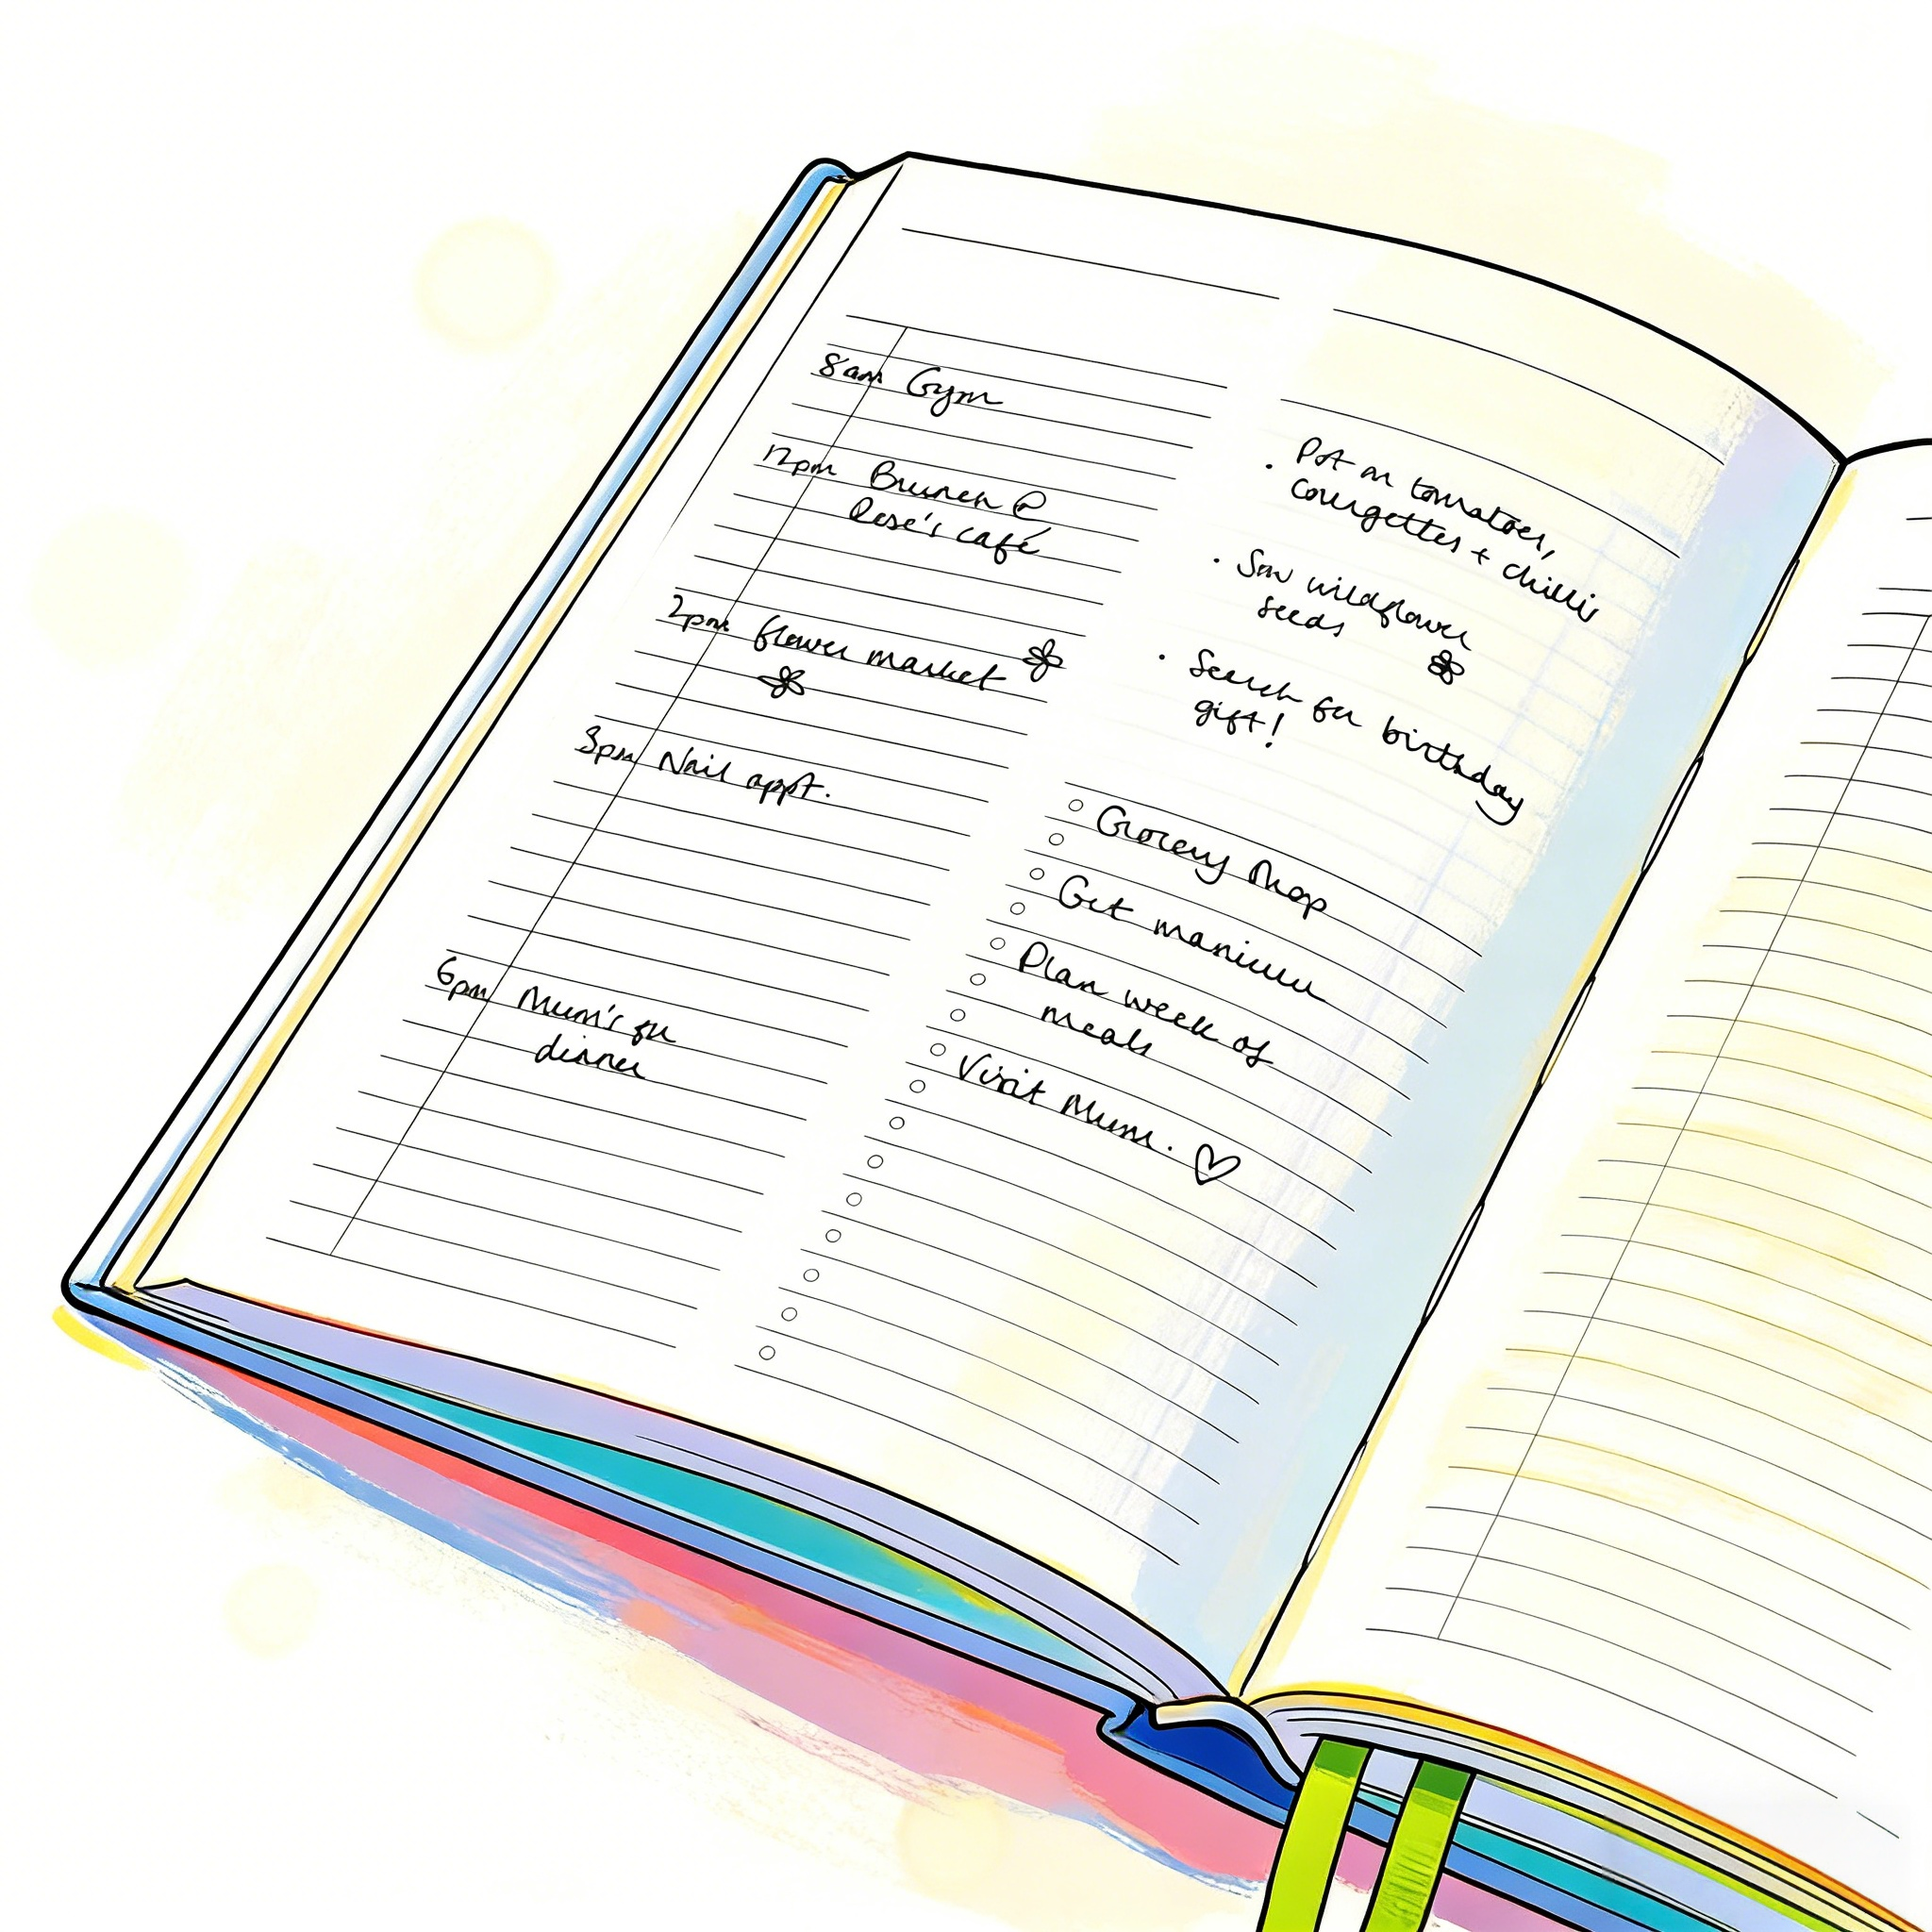 8am Gym
12pm Brunch @
Rose's café
2pm flower market
3pm Nail appt.
6pm Mum's for
dinner
• Pot on tomatoes,
courgettes + chillis
• Sow wildflower
seeds
• Search for birthday
gift!
Grocery shop
Get manicure
Plan week of
meals
Visit Mum.